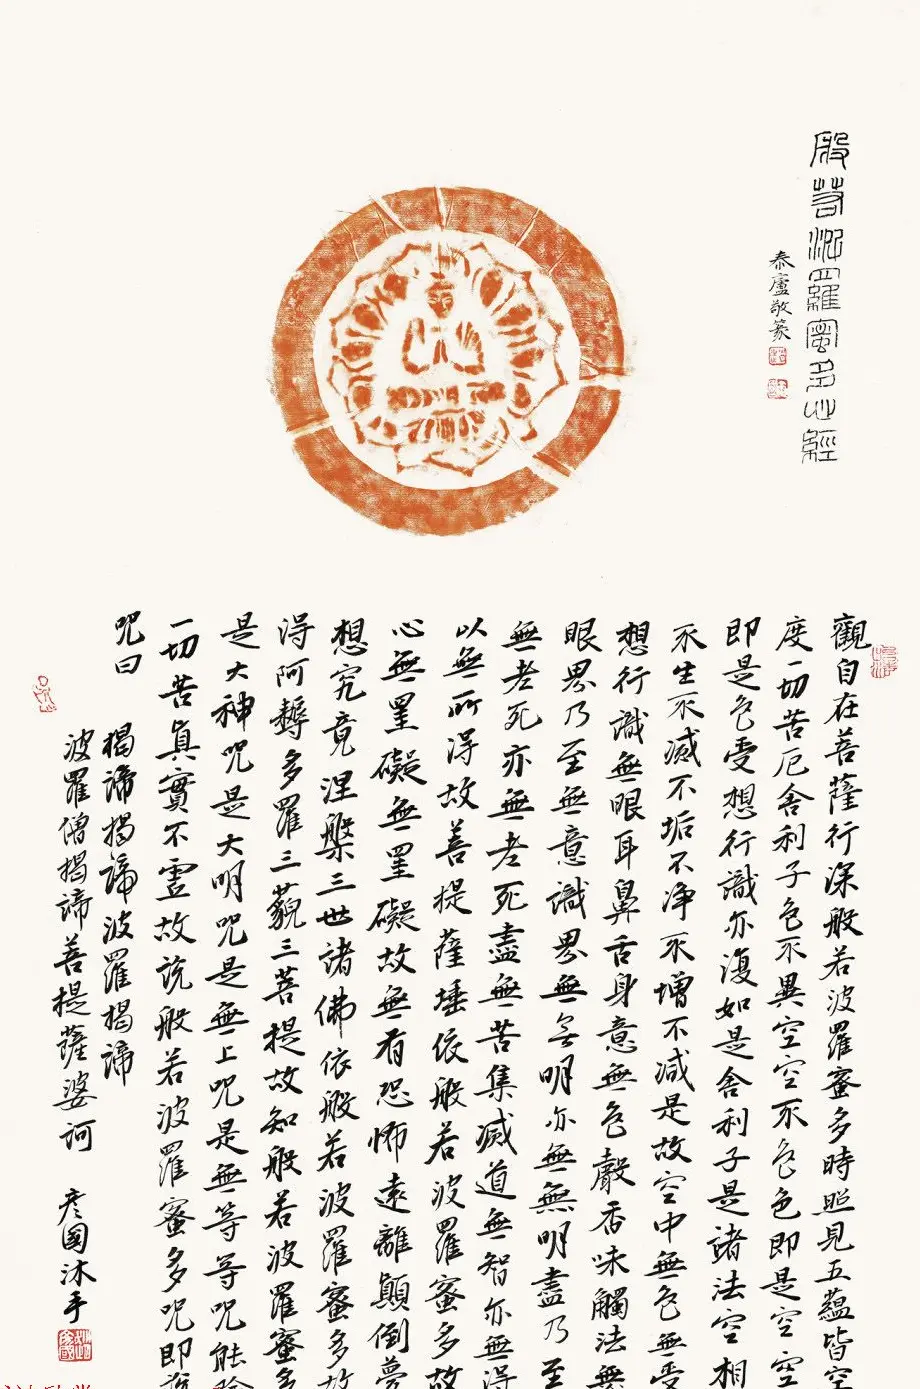 般若波羅蜜多心經
泰廬敬篆
觀自在菩薩行深般若波羅蜜多時照見五蘊皆空
度一切苦厄舍利子色不異空空不色色即是空空
即是色受想行識亦復如是舍利子是諸法空相
不生不滅不垢不净不增不減是故空中無色無受
想行識無眼耳鼻舌身意無色聲香味觸法無
眼界乃至無意識界無無明亦無無明盡乃至
無老死亦無老死盡無苦集滅道無智亦無得
以無所得故菩提薩埵依般若波羅蜜多故
心無罣礙無罣礙故無有恐怖遠離顛倒夢
想究竟涅槃三世諸佛依般若波羅蜜多故
得阿耨多羅三藐三菩提故知般若波羅蜜多
是大神咒是大明咒是無上咒是無等等咒能除
一切苦真實不虛故說般若波羅蜜多咒即說
咒曰
揭諦揭諦波羅揭諦
波羅僧揭諦菩提薩婆訶 彦國沐手